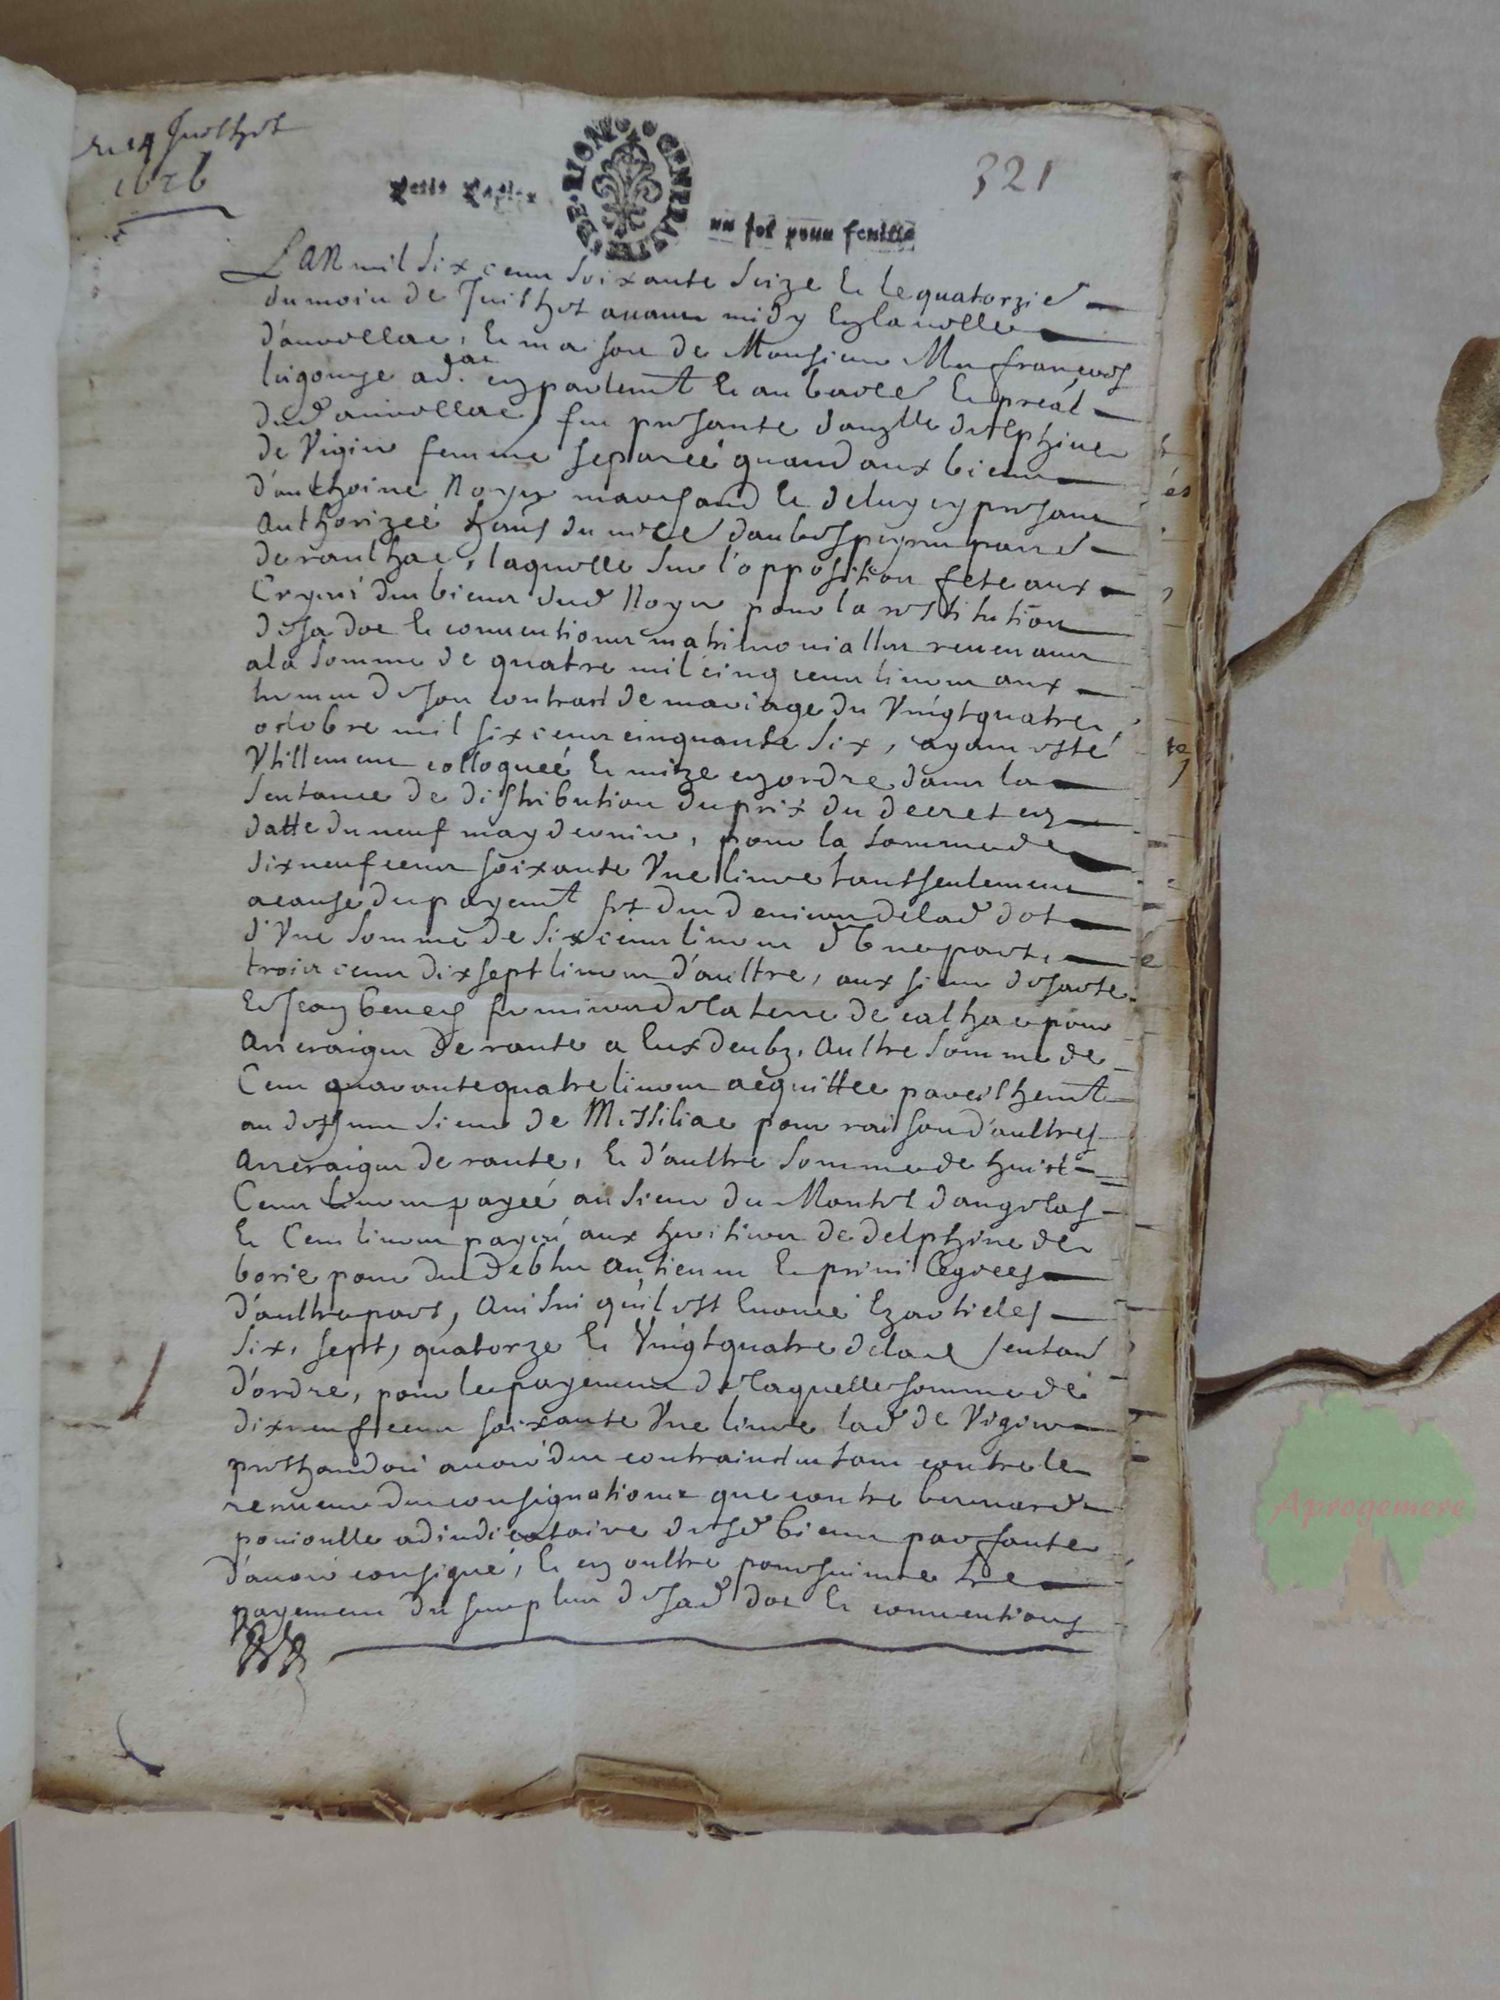 du 14 Juilhet
1676
Petit Papier
GENERALITE DE RION
un sol pour feuille
321
L'AN mil six cens soixante seize et le quatorzie
du mois de Juilhet avant midy en la ville
d'aurillac, et maison de Monsieur Me françois
ligonye ad.at en parlemt et au bailł et preāl
dud aurillac, fut presante damlle delphine
de Vigier femme separeé quand aux biens
d'anthoine Noyer marchand et de luy cy presant
Authorizeé hans du
de roulhac, laquelle sur l'opposition fete aux
Cryeés des biens dud Noyer pour la restitution
de sa dot et conventions matrimonialles revenans
a la somme de quatre mil cinq cens livres aux
termes de son contract de mariage du Vingtquatre
octobre mil six cens cinquante six, ayant esté
Vtillement colloqueé et mize en ordre dans la
sentance de distribution du prix du decret en
datte du neuf may dernier, pour la somme de
dixneuf cens soixante Vne livre tant seulement
a cause du payemt fet des deniers de lad dot
d'Vne somme de six cens livres d'Une part,
trois cens dixsept livres d'aultre, aux sieurs de sarte
et Jean benech fermiers de la terre de calhac pour
Arreraiges de rante a eux deubz, Aultre somme de
Cent quarante quatre livres acquittée pareilhemt
au deffunt sieur de Messiliac pour raison d'aultres
Arreraiges de rante, et d'aultre somme de huict
Cens livres payeé au sieur du Montel dangelas
et Cent livres payeés aux heritiers de delphine de
borie pour des debtes Antiens et privilegyees
d'aultre part, Ainsin qu'il est enoncé ez articles
six, sept, quatorze et Vingtquatre de lad sentan
d'ordre, pour le payement de laquelle somme de
dixneuf cens soixante Vne livre lad de Vigier
prethandoit avoir des contrainctes tant contre le
reseveur des consignations que contre bernard
poujoulle adjudicataire desd biens par faute
d'avoir consigné, et en oultre poursuivre le
payement du surplus de sad dot et conventions
Aprogemere